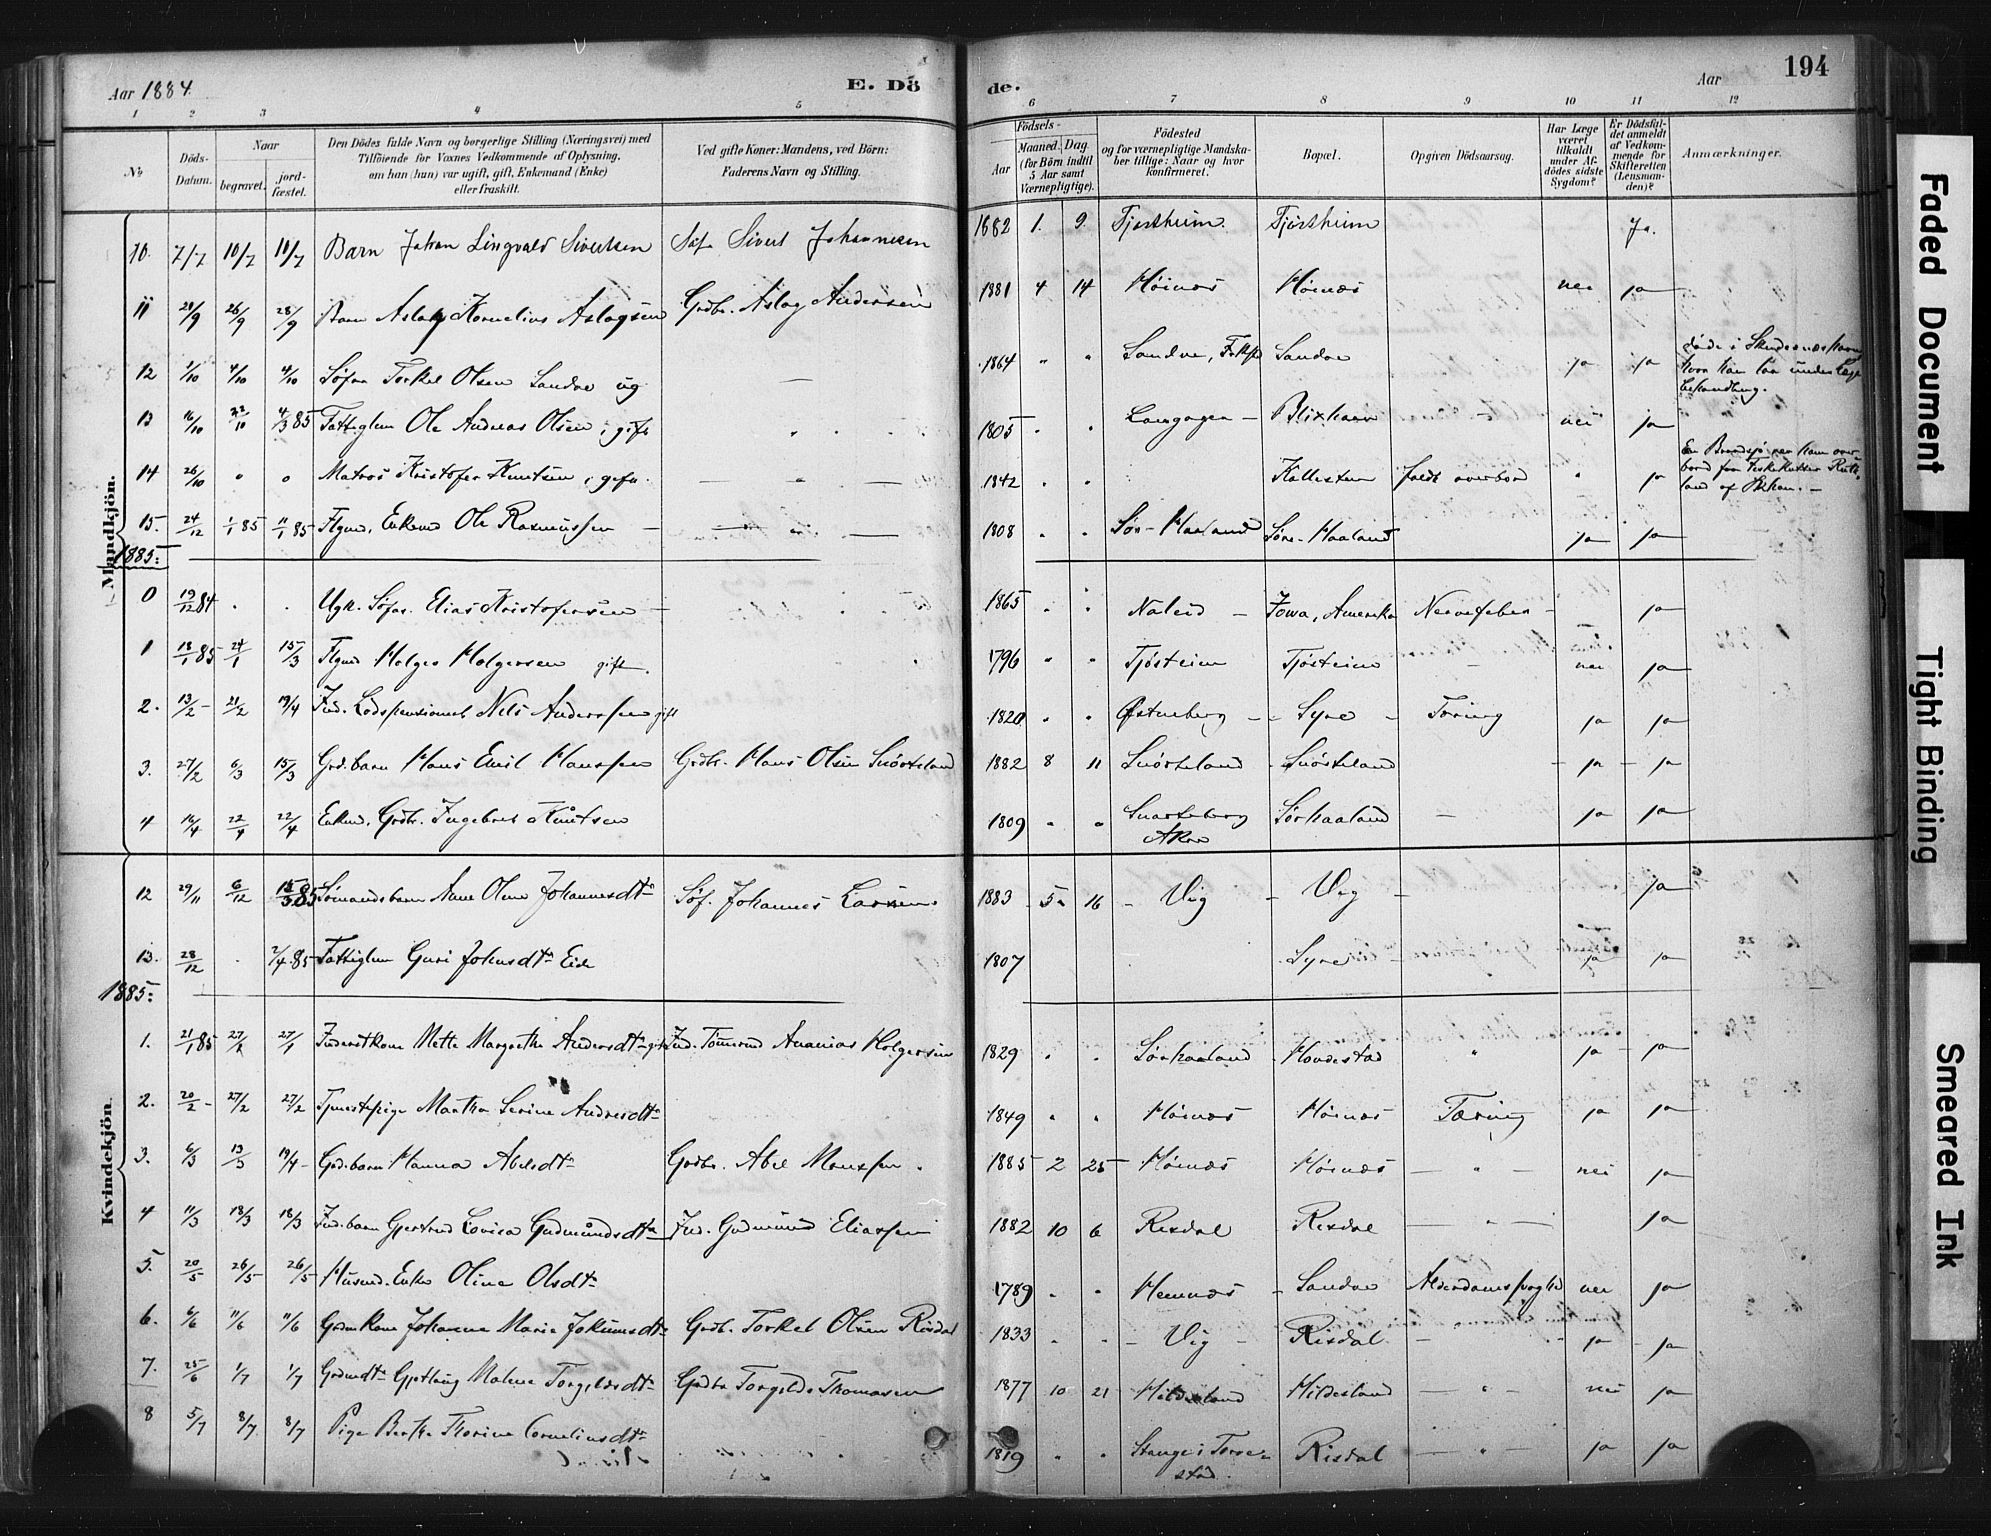 Aar 1884.
E. Dö
de.
Aar
194
1 2 3 4 5 6 7 8 9 10 11 12
№
Döds-Datum.
Naar
begravet.
jord-fæstet.
Den Dödes fulde Navn og borgerlige Stilling (Næringsvei) med
Tilföiende for Voxnes Vedkommende af Oplysning,
om han (hun) var ugift, gift, Enkemand (Enke)
eller fraskilt.
Ved gifte Koner: Mandens, ved Börn:
Faderens Navn og Stilling.
Födsels-
Aar
Maaned. Dag.
(for Börn indtil
5 Aar samt
Værnepligtige).
Födested
og for værnepligtige Mandska-
ber tillige: Naar og hvor
konfirmeret.
Bopæl.
Opgiven Dödsaarsag.
Har Læge
været
tilkaldt
under Af-
dödes sidste
Sygdom?
Er Dödsfal-
det anmeldt
af Vedkom-
mende for
Skifteretten
(Lensman-
den)?
Anmærkninger.
Mandkjön.
10. 7/7 10/7 10/7 Barn Johan Lingvald Sivertsen Søf. Sivert Johannesen 1882 1. 9. Tjøstheim. Tjøstheim Ja.
11 21/9 26/9 28/9 Barn Aslag Kornelius Aslagsen Grdbr. Aslag Andersen 1881 4 14 Høinæs Høinæs nei ja
12 1/10 4/10 4/10 Søfar Torkel Olsen Sandve ug. — 1864 " " Sandve, Sandve ja ja døde i Skudesneshavn
hvor han laa under Læge
behandling.
13 16/10 22/10 4/3 85 Fattiglem Ole Andreas Olsen, gift 1805 " " Langaager — Blixhavn nei ja
14 26/10 " " Matros Kristofer Knutsen, gift. 1842 " " Kallesten faldt overbord " ja En Brodsjø rev ham over-
bord fra Fiskekutter
land af
15. 24/12 1/1 85 11/1 85 Flgmd. Enkemd Ole Rasmussen — 1808 " " Sør-Haaland Søre-Haaland ja ja
1885:
0 19/12 84 " " Ugk. Søfar. Elias Kristofersen — 1865 " " Naleid — Iowa, Amerika Nervefeber — ja
1 18/1 85 24/1 15/3 Flgmd Holger Holgersen gift. 1796 " " Tjøsteim Tjøsteim — nei ja
2. 13/2 - 21/2 19/4 Ind. Lodspensionist Nels Anderssen gift 1820 " " Østenberg — Syre — Tæring ja ja
3. 27/2 6/3 15/3 Grd.barn Hans Emil Hanssen Grdbr. Hans Olsen Snørteland 1882 8 11 Snørteland Snørteland — ja — ja
4 16/4 22/4 22/4 Enkmd. Grdbr. Ingebret Knutsen 1809 " " Snarteberg
Akre Sørhaaland — ja ja
Kvindekjön.
12 29/11 6/12 15/3 85 Sømandsbarn Anne Oline Johannesdtr Søf. Johannes Larsen. 1883 5 16 — Vig — Vig — ja
13. 28/12 " 2/4 85 Fattiglem Guri Johnsdtr Eide 1807 Syre ja ja
1885:
1. 21/1 85 27/1 27/1 Inderstkone Mette Margrethe Andersdtr gift Ind. Tømmermd Ananias Holgersen 1829 " " Sørhaaland Hovdestad " ja ja
2. 20/2 - 27/2 27/2 Tjenestepige Martha Serine Andersdtr 1849 " " Høinæs Høinæs Tæring ja ja
3. 6/3 13/3 19/4 - Grd.barn Hanna Abelsdtr Grdbr. Abel Monssen. 1885 2 25 Høinæs Høinæs — " — nei ja
4 11/3 18/3 18/3 Ind.barn Gjertrud Lovisa Gudmundsdtr Ind. Gudmund Eliassen 1882 10 6 Risdal Risdal — " — ja
5. 20/5 26/5 26/5 Husmd. Enke Oline Olsdtr 1789 " " Hemnæs — Sandve Alderdomssvaghed nei ja
6. 6/6 11/6 11/6 Gaardm.kone Johanna Marie Jokumsdtr Grdbr. Torkel Olsen Risdal 1833 " " — Vig — Risdal — " ja — ja
7. 25/6 1/7 1/7 Grdmdtr Gjetlaug Malene Torgildsdtr Grdbr Torgilds Thomasen 1877 10 21 Hildesland Hildesland — " — nei ja
8 5/7 8/7 8/7 Pige Berthe Thorine Corneliusdtr 1819 " " Stange i Torve-
stad. Risdal — " — ja ja
Faded Document
Tight Binding
Smeared Ink